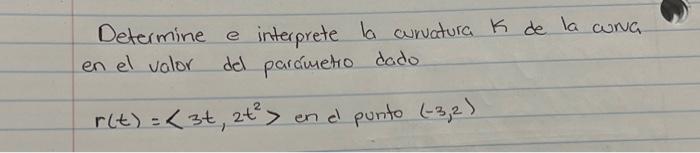 Determine e interprete la curvatura K de la curva
en el valor del parámetro dado
r(t) = <3t, 2t²> en el punto (-3,2)